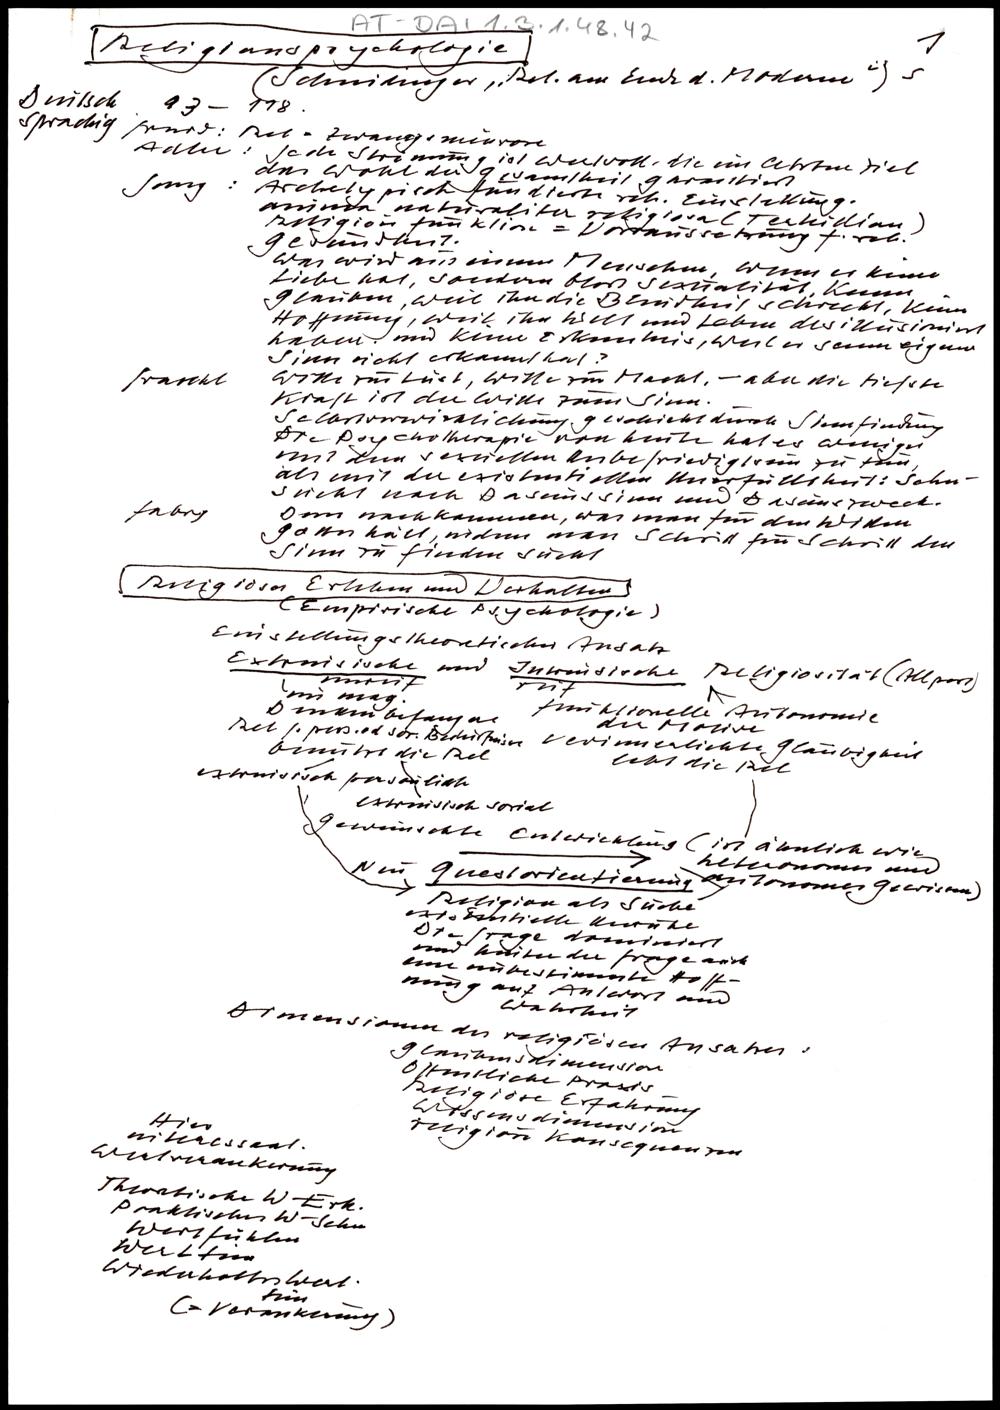 AT-DAI 1.3.1.48.42
1
Religionspsychologie
(Schmidinger, "Rel. am Ende d. Moderne") S
Deutsch 93 - 118.
sprachig Freud: Rel = Zwangsneurose
Adler: Jede Strömung ist wertvoll, die im letzten Ziel
das Wohl der Gesamtheit garantiert
Jung: Archetypisch fundierte rel. Einstellung.
anima naturaliter religiosa (Tertullian)
Religion funktion = Voraussetzung f. rel.
Gesundheit.
Was wird aus einem Menschen, wenn er keine
Liebe hat, sondern bloß Sexualität, Keinen
Glauben, weil ihn die Blindheit schreckt, Keine
Hoffnung, weil ihn Welt und Leben desillusioniert
haben und keine Erkenntnis, weil er seinen eigenen
Sinn nicht erkannt hat?
Frankl Wille zur Lust, Wille zur Macht, - aber die tiefste
Kraft ist der Wille zum Sinn.
Selbstverwirklichung geschieht durch Sinnfindung
Die Psychotherapie von heute hat es weniger
mit dem sexuellen Unbefriedigtsein zu tun,
als mit der existentiellen Unerfülltheit: Sehn-
sucht nach Daseinssinn und Daseinszweck.
Fabry Dem nachkommen, was man für den Willen
Gottes hält, indem man Schritt für Schritt den
Sinn zu finden sucht
Religiöses Erleben und Verhalten
(Empirische Psychologie)
Einstellungstheoretischer Ansatz
Extrinsische und Intrinsische Religiosität (Allport)
unreif reif
im mag. funktionelle Autonomie
Denken befangene der Motive
Rel f. pers. od. soz. Bedürfnisse verinnerlichte Gläubigkeit
benützt die Rel lebt die Rel
extrinsisch persönlich
extrinsisch sozial
Gewünschte Entwicklung (ist ähnlich wie
heteronomes und
Neu Questorientierung autonomes Gewissen)
Religion als Suche
existentielle Unruhe
Die Frage dominiert
und hinter der Frage auch
eine unbestimmte Hoff-
nung auf Antwort und
Wahrheit
Dimensionen des religiösen Ansatzes:
Glaubensdimension
Öffentliche Praxis
Religiöse Erfahrung
Wissensdimension
religiöse Konsequenzen
Hier
interessant.
Wertverankerung
Theoretische W-Erk.
Praktisches W-Sehen
Wertfühlen
Werttun
Wiederholtes Wert-
tun
(= Verankerung)